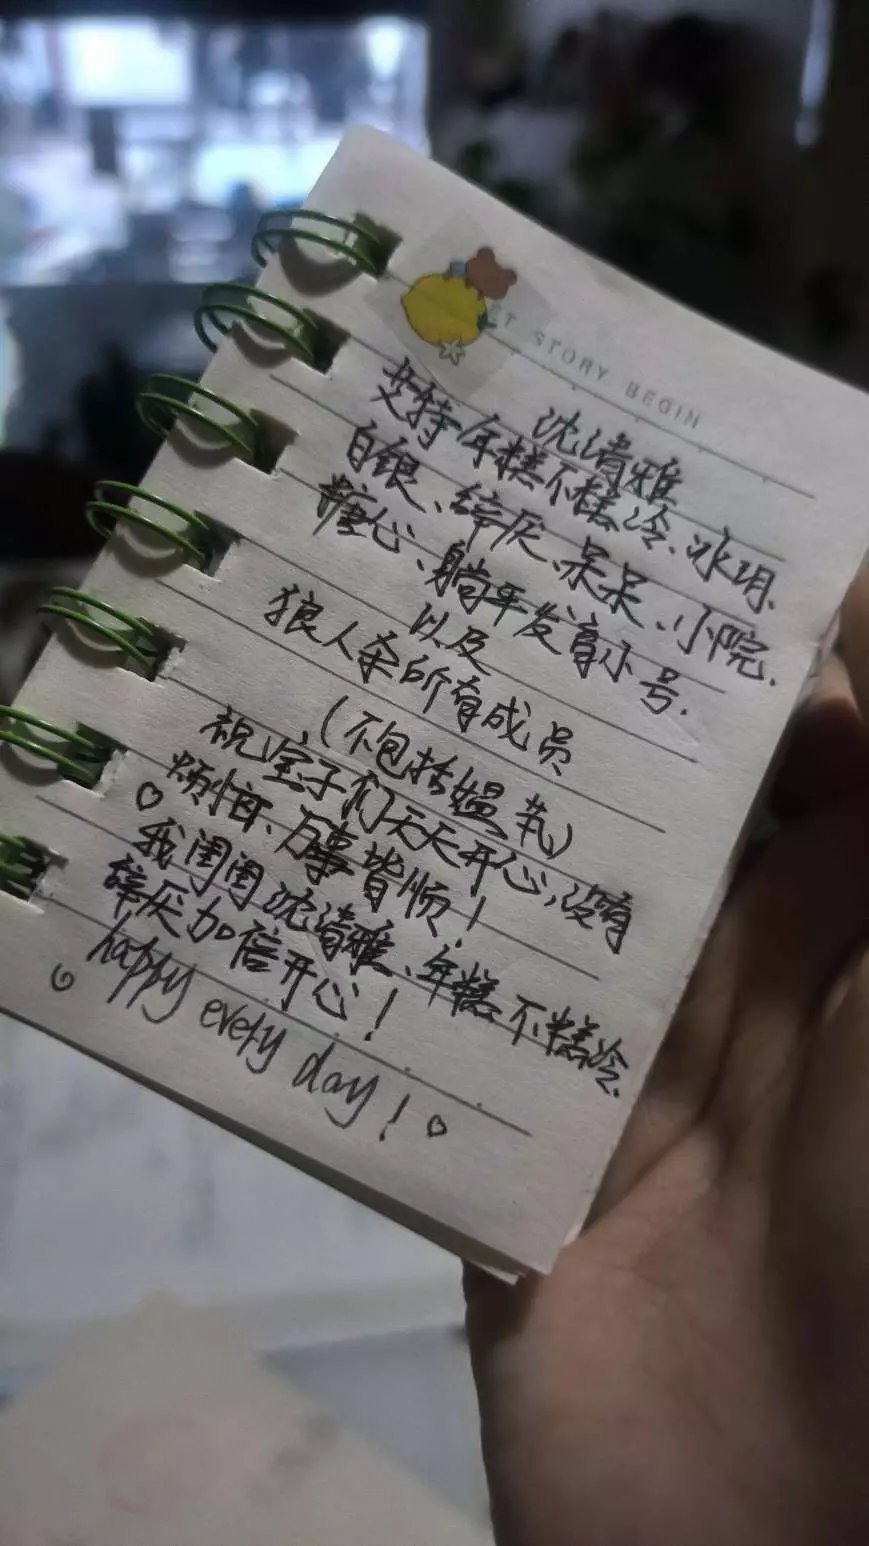 ET STORY BEGIN
沈清难
艾特年糕不糕冷、冰玥、
白银、碎厌、呆呆、小院、
糖心、躺平发育小号.
以及
狼人杀所有成员
(不包括媪芤)
祝宝子们天天开心,没有
烦恼、万事皆顺!
我闺闺沈清难、年糕不糕冷、
碎厌加倍开心!
happy every day!